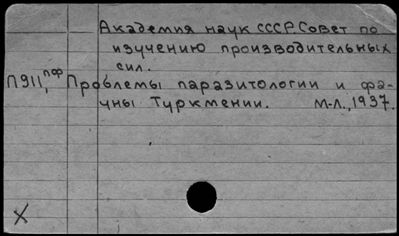 Академия наук СССР. Совет по
изучению производительных
сил.
П911, пф Проблемы паразитологии и фа-
уны Туркмении. М-Л., 1937.
X